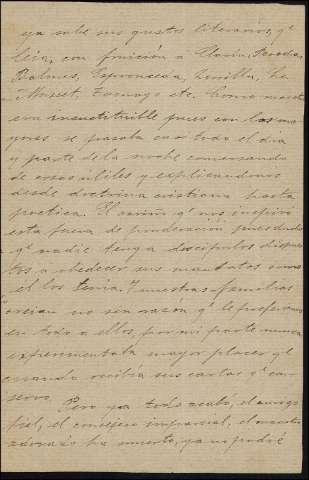 ya sabe sus gustos literarios, qe
leía, con fruición a Clarín, Pereda,
Balmes, Espronceda, Zorrilla, de
Musset, Zamago etc. Como maestro
era insustituible pues con los ma-
yores se pasaba casi todo el día
y parte de la noche conversando
de cosas utiles y explicandonos
desde doctrina cristiana hasta
poetica. El cariño qe nos inspiró
esta fuera de ponderación pues dudo
qe nadie tenga discipulos dispues-
tos a obedecer sus mandatos como
el los tenía. Y nuestras familias
creian no sin razón qe le preferiamos
en todo a ellos, por mi parte nunca
experimentaba mayor placer qe
cuando recibía sus cartas qe con-
servo.
Pero ya todo acabó, el amigo
fiel, el consejero imparcial, el maestro
ha muerto, ya no podré